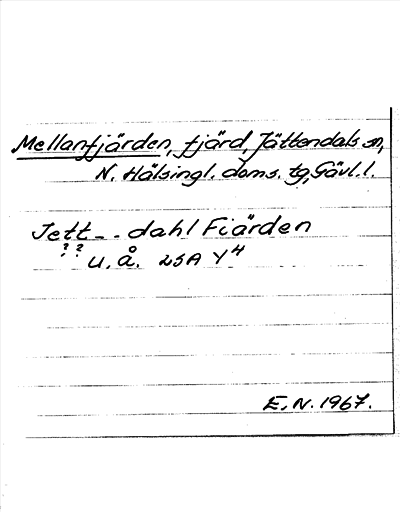 Mellanfjärden, fjärd, Jättendals sn,
N. Hälsingl. doms. tg, Gävl. l.
Jett - - dahl Fiärden
? ?
U. Å. LSA Y4
E. N. 1967.